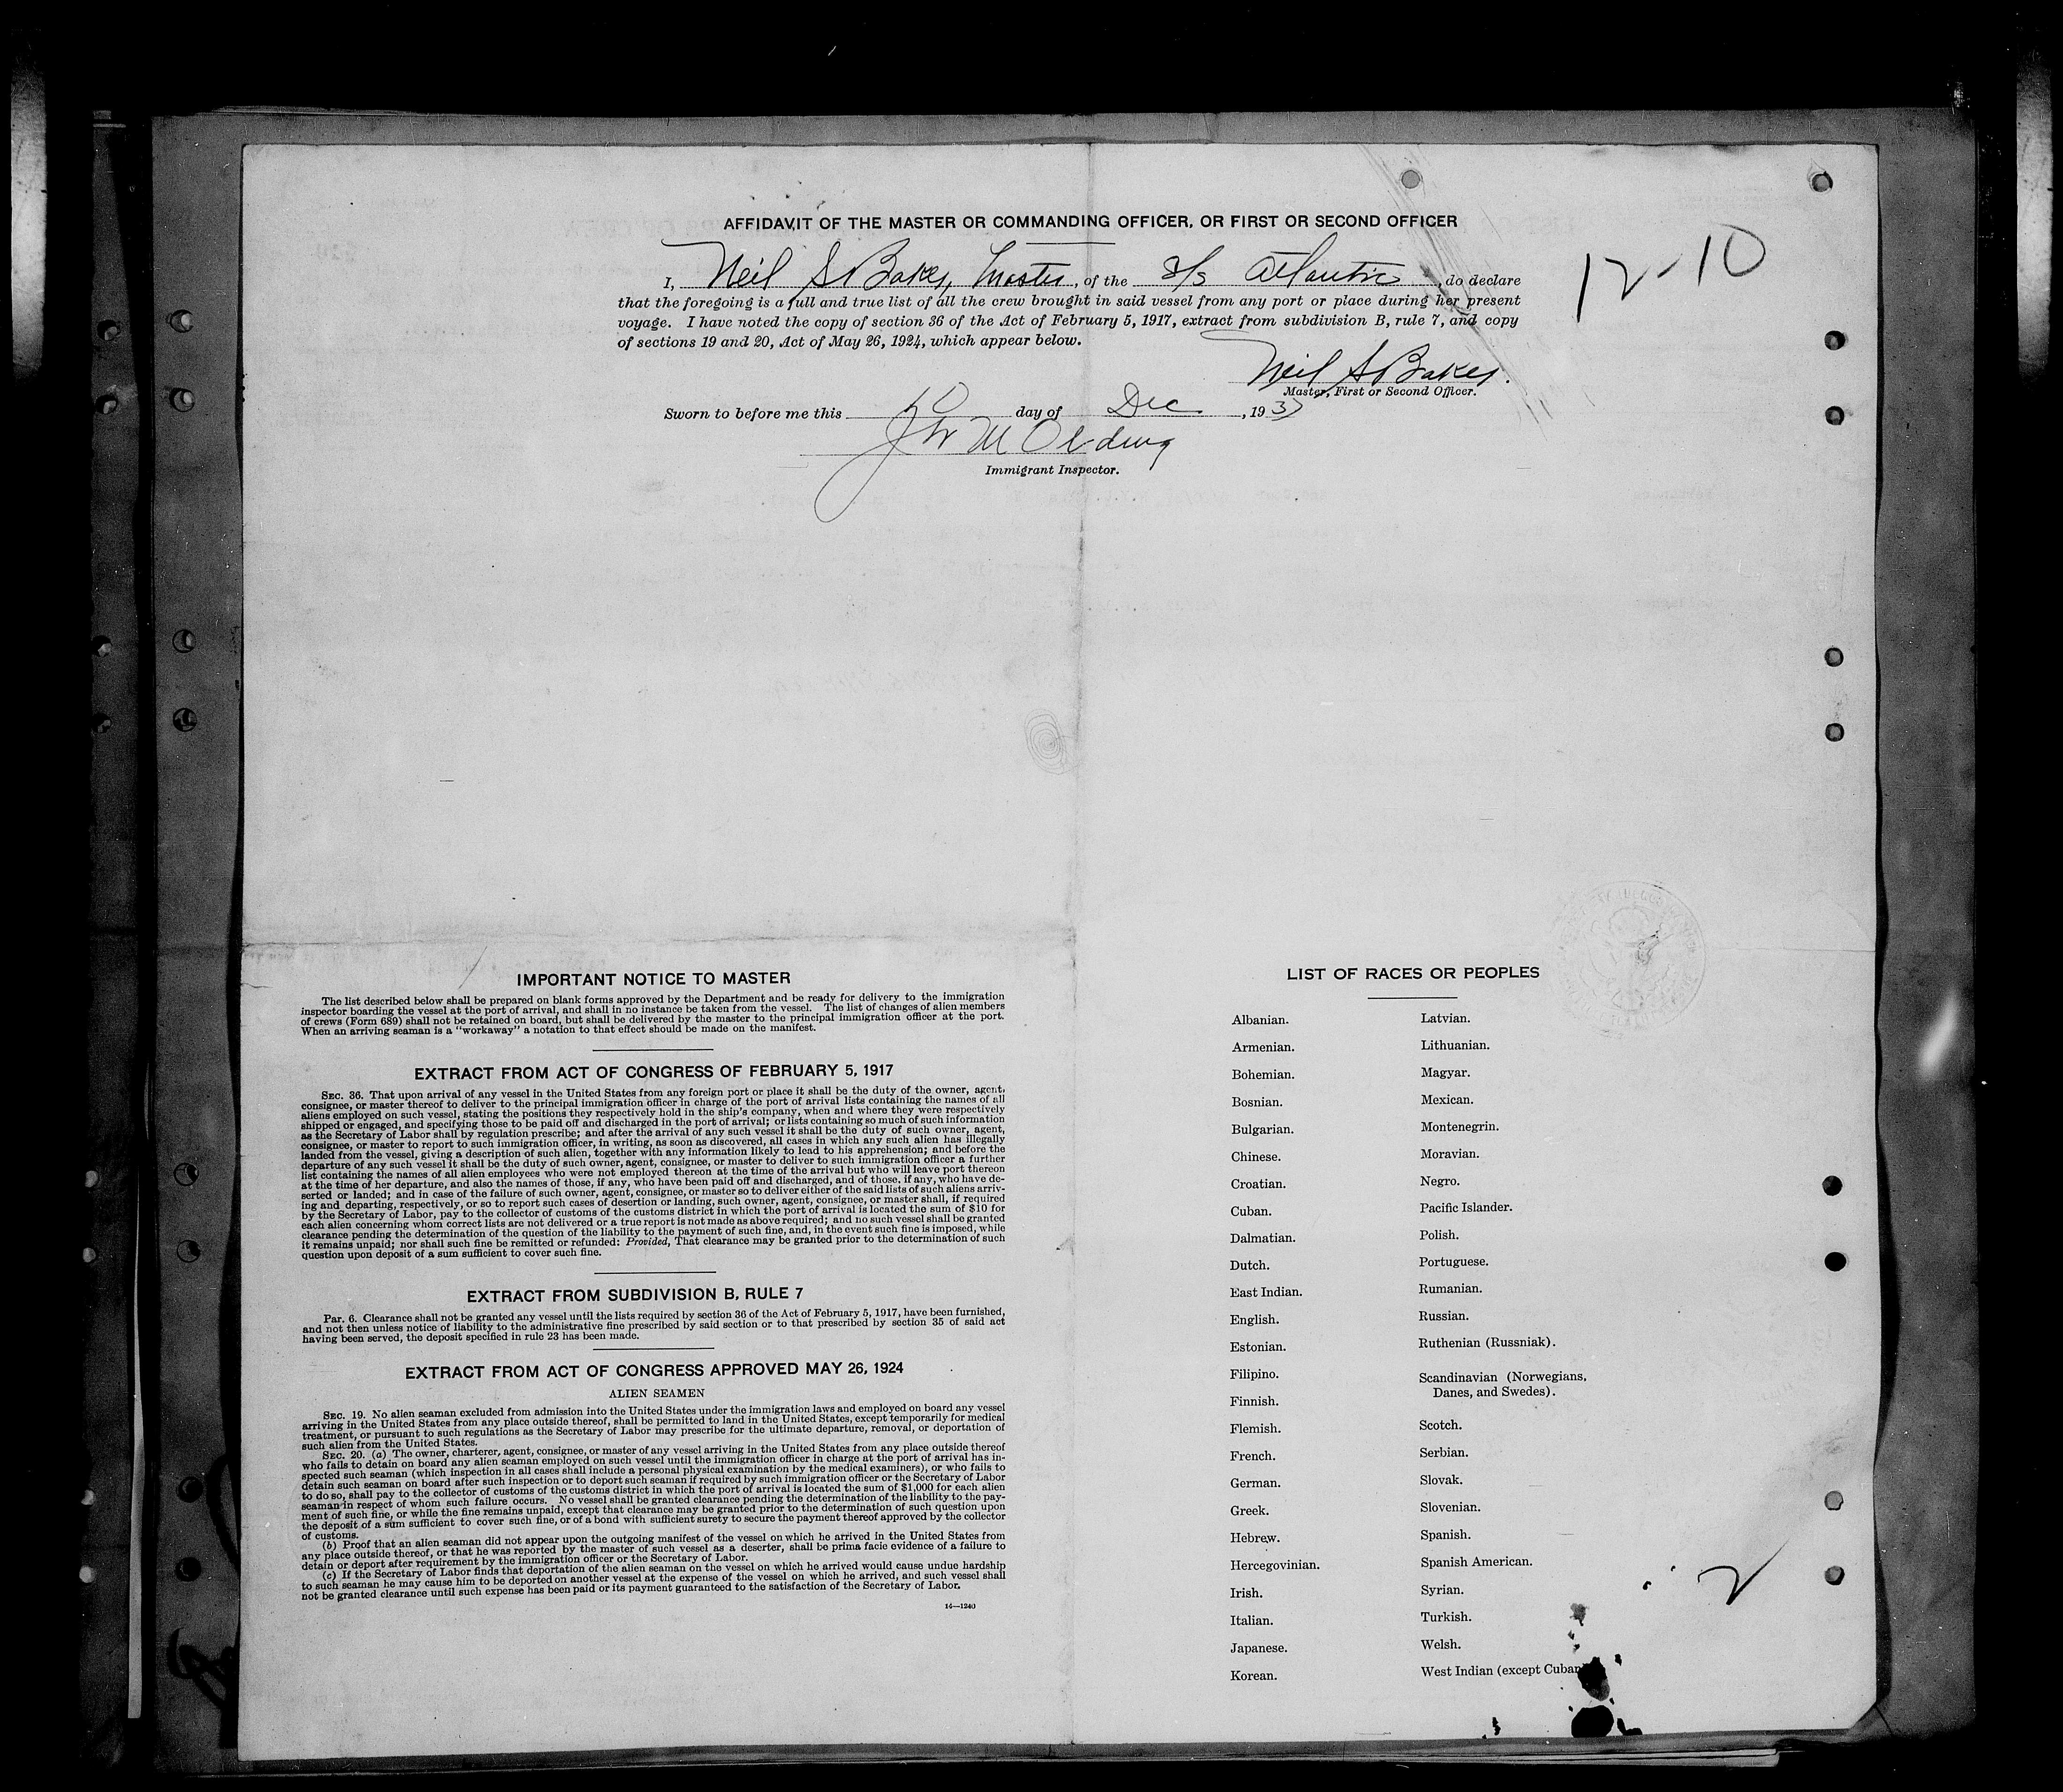 AFFIDAVIT OF THE MASTER OR COMMANDING OFFICER, OR FIRST OR SECOND OFFICER
12-10
I, Neil S Baker, Master, of the S/S Atlantic, do declare
that the foregoing is a full and true list of all the crew brought in said vessel from any port or place during her present
voyage. I have noted the copy of section 36 of the Act of February 5, 1917, extract from subdivision B, rule 7, and copy
of sections 19 and 20, Act of May 26, 1924, which appear below.
Neil S Baker.
Master, First or Second Officer.
Sworn to before me this 10 day of Dec, 193
Immigrant Inspector.
IMPORTANT NOTICE TO MASTER
The list described below shall be prepared on blank forms approved by the Department and be ready for delivery to the immigration
inspector boarding the vessel at the port of arrival, and shall in no instance be taken from the vessel. The list of changes of alien members
of crews (Form 689) shall not be retained on board, but shall be delivered by the master to the principal immigration officer at the port.
When an arriving seaman is a "workaway" a notation to that effect should be made on the manifest.
EXTRACT FROM ACT OF CONGRESS OF FEBRUARY 5, 1917
SEC. 36. That upon arrival of any vessel in the United States from any foreign port or place it shall be the duty of the owner, agent,
consignee, or master thereof to deliver to the principal immigration officer in charge of the port of arrival lists containing the names of all
aliens employed on such vessel, stating the positions they respectively hold in the ship's company, when and where they were respectively
shipped or engaged, and specifying those to be paid off and discharged in the port of arrival; or lists containing so much of such information
as the Secretary of Labor shall by regulation prescribe; and after the arrival of any such vessel it shall be the duty of such owner, agent,
consignee, or master to report to such immigration officer, in writing, as soon as discovered, all cases in which any such alien has illegally
landed from the vessel, giving a description of such alien, together with any information likely to lead to his apprehension; and before the
departure of any such vessel it shall be the duty of such owner, agent, consignee, or master to deliver to such immigration officer a further
list containing the names of all alien employees who were not employed thereon at the time of the arrival but who will leave port thereon
at the time of her departure, and also the names of those, if any, who have been paid off and discharged, and of those, if any, who have de-
serted or landed; and in case of the failure of such owner, agent, consignee, or master so to deliver either of the said lists of such aliens arriv-
ing and departing, respectively, or so to report such cases of desertion or landing, such owner, agent, consignee, or master shall, if required
by the Secretary of Labor, pay to the collector of customs of the customs district in which the port of arrival is located the sum of $10 for
each alien concerning whom correct lists are not delivered or a true report is not made as above required; and no such vessel shall be granted
clearance pending the determination of the question of the liability to the payment of such fine, and, in the event such fine is imposed, while
it remains unpaid; nor shall such fine be remitted or refunded: Provided, That clearance may be granted prior to the determination of such
question upon deposit of a sum sufficient to cover such fine.
EXTRACT FROM SUBDIVISION B, RULE 7
Par. 6. Clearance shall not be granted any vessel until the lists required by section 36 of the Act of February 5, 1917, have been furnished,
and not then unless notice of liability to the administrative fine prescribed by said section or to that prescribed by section 35 of said act
having been served, the deposit specified in rule 23 has been made.
EXTRACT FROM ACT OF CONGRESS APPROVED MAY 26, 1924
ALIEN SEAMEN
SEC. 19. No alien seaman excluded from admission into the United States under the immigration laws and employed on board any vessel
arriving in the United States from any place outside thereof, shall be permitted to land in the United States, except temporarily for medical
treatment, or pursuant to such regulations as the Secretary of Labor may prescribe for the ultimate departure, removal, or deportation of
such alien from the United States.
SEC. 20. (a) The owner, charterer, agent, consignee, or master of any vessel arriving in the United States from any place outside thereof
who fails to detain on board any alien seaman employed on such vessel until the immigration officer in charge at the port of arrival has in-
spected such seaman (which inspection in all cases shall include a personal physical examination by the medical examiners), or who fails to
detain such seaman on board after such inspection or to deport such seaman if required by such immigration officer or the Secretary of Labor
to do so, shall pay to the collector of customs of the customs district in which the port of arrival is located the sum of $1,000 for each alien
seaman in respect of whom such failure occurs. No vessel shall be granted clearance pending the determination of the liability to the pay-
ment of such fine, or while the fine remains unpaid, except that clearance may be granted prior to the determination of such question upon
the deposit of a sum sufficient to cover such fine, or of a bond with sufficient surety to secure the payment thereof approved by the collector
of customs.
(b) Proof that an alien seaman did not appear upon the outgoing manifest of the vessel on which he arrived in the United States from
any place outside thereof, or that he was reported by the master of such vessel as a deserter, shall be prima facie evidence of a failure to
detain or deport after requirement by the immigration officer or the Secretary of Labor.
(c) If the Secretary of Labor finds that deportation of the alien seaman on the vessel on which he arrived would cause undue hardship
to such seaman he may cause him to be deported on another vessel at the expense of the vessel on which he arrived, and such vessel shall
not be granted clearance until such expense has been paid or its payment guaranteed to the satisfaction of the Secretary of Labor.
14—1240
LIST OF RACES OR PEOPLES
Albanian.
Armenian.
Bohemian.
Bosnian.
Bulgarian.
Chinese.
Croatian.
Cuban.
Dalmatian.
Dutch.
East Indian.
English.
Estonian.
Filipino.
Finnish.
Flemish.
French.
German.
Greek.
Hebrew.
Hercegovinian.
Irish.
Italian.
Japanese.
Korean.
Latvian.
Lithuanian.
Magyar.
Mexican.
Montenegrin.
Moravian.
Negro.
Pacific Islander.
Polish.
Portuguese.
Rumanian.
Russian.
Ruthenian (Russniak).
Scandinavian (Norwegians,
Danes, and Swedes).
Scotch.
Serbian.
Slovak.
Slovenian.
Spanish.
Spanish American.
Syrian.
Turkish.
Welsh.
West Indian (except Cuban
2